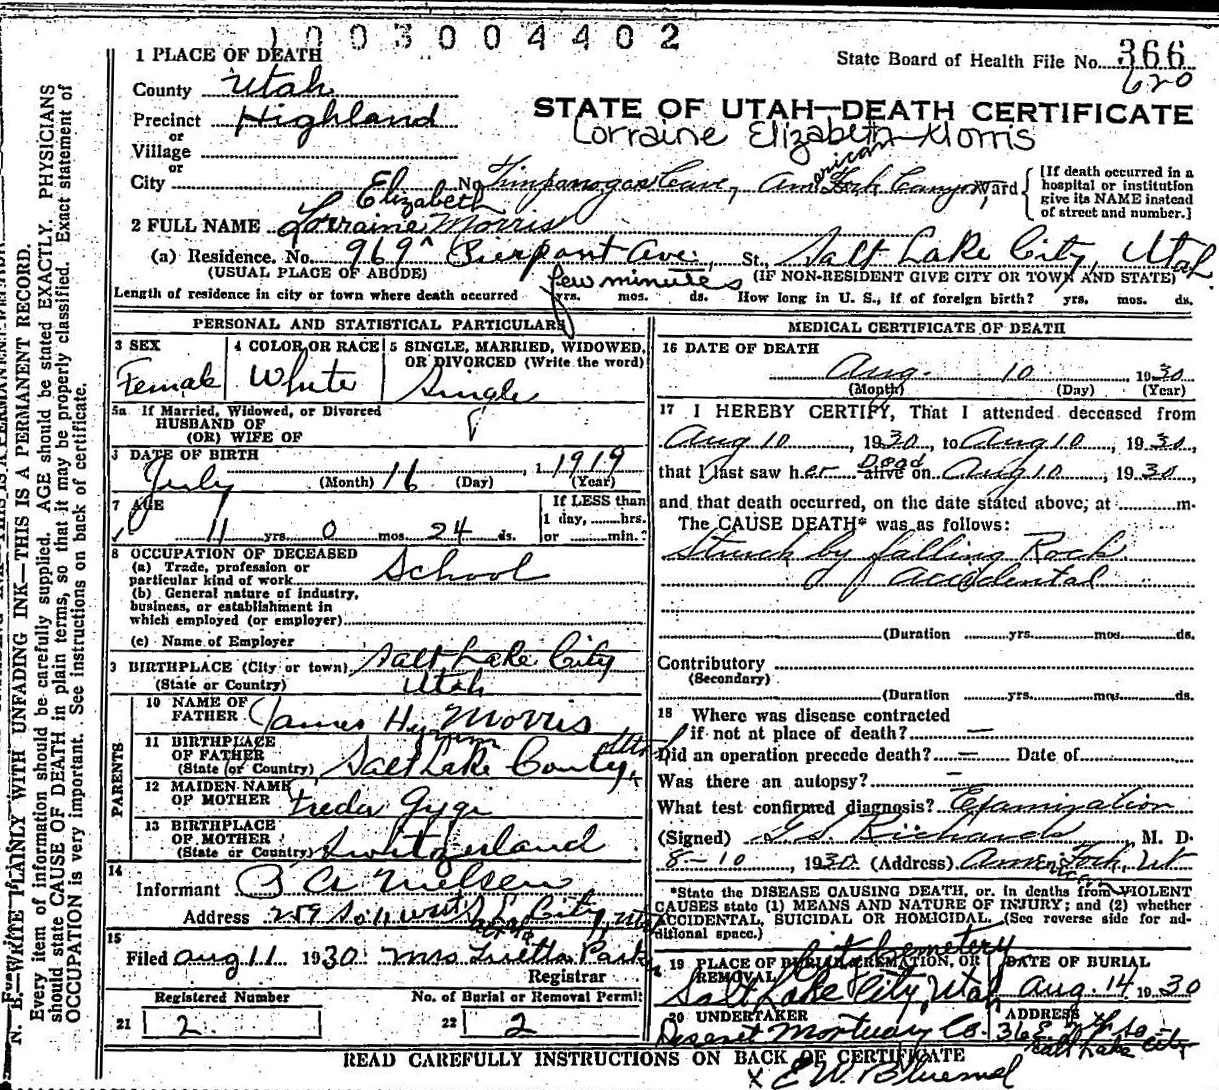 1003004402
1 PLACE OF DEATH
State Board of Health File No. 366
620
County Utah
STATE OF UTAH—DEATH CERTIFICATE
Precinct Highland
Lorraine Elizabeth Morris
or
Village
or
City No. Timpanogas Cave, American Fork Canyon, Ward
[If death occurred in a
hospital or institution
give its NAME instead
of street and number.]
Elizabeth
2 FULL NAME Lorraine Morris
(a) Residence. No. 969 Pierpont Ave. St., Salt Lake City, Utah
(USUAL PLACE OF ABODE) (IF NON-RESIDENT GIVE CITY OR TOWN AND STATE)
few minutes
Length of residence in city or town where death occurred yrs. mos. ds. How long in U. S., if of foreign birth? yrs. mos. ds.
PERSONAL AND STATISTICAL PARTICULARS
3 SEX
Female
4 COLOR OR RACE
White
5 SINGLE, MARRIED, WIDOWED,
OR DIVORCED (Write the word)
Single
5a If Married, Widowed, or Divorced
HUSBAND OF
(OR) WIFE OF
DATE OF BIRTH
July (Month) 16 (Day) 1919 (Year)
7 AGE
11 yrs. 0 mos. 24 ds.
If LESS than
1 day, hrs.
or min.?
8 OCCUPATION OF DECEASED
(a) Trade, profession or
particular kind of work School
(b) General nature of industry,
business, or establishment in
which employed (or employer)
(c) Name of Employer
9 BIRTHPLACE (City or town) Salt Lake City
(State or Country) Utah
PARENTS
10 NAME OF
FATHER James Hyrum Morris
11 BIRTHPLACE
OF FATHER
(State or Country) Salt Lake County Utah
12 MAIDEN NAME
OF MOTHER Freda Gygi
13 BIRTHPLACE
OF MOTHER
(State or Country) Switzerland
14
Informant B A Nielsen
Address 259 So 11 West S L City, Utah
15
Filed Aug 11 1930 Mrs Luella Park
Registrar
Registered Number
21 2
No. of Burial or Removal Permit
22 2
MEDICAL CERTIFICATE OF DEATH
16 DATE OF DEATH
Aug. 10 1930
(Month) (Day) (Year)
17 I HEREBY CERTIFY, That I attended deceased from
Aug 10, 1930, to Aug 10, 1930,
that I last saw her Dead alive on Aug 10, 1930
and that death occurred, on the date stated above; at m.
The CAUSE DEATH* was as follows:
Struck by falling Rock
accidental
(Duration yrs. mos. ds.
Contributory
(Secondary)
(Duration yrs. mos. ds.
18 Where was disease contracted
if not at place of death? —
Did an operation precede death? — Date of
Was there an autopsy? —
What test confirmed diagnosis? Examination
(Signed) G.S. Richards, M. D.
8-10, 1930 (Address) American Fork, Ut
*State the DISEASE CAUSING DEATH, or. in deaths from VIOLENT
CAUSES state (1) MEANS AND NATURE OF INJURY; and (2) whether
ACCIDENTAL, SUICIDAL OR HOMICIDAL. (See reverse side for ad-
ditional space.)
City Cemetery
19 PLACE OF BURIAL, CREMATION, OR
REMOVAL
Salt Lake City, Utah
DATE OF BURIAL
Aug. 14 1930
20 UNDERTAKER
Deseret Mortuary Co.
ADDRESS
36 E 7th So
Salt Lake City
READ CAREFULLY INSTRUCTIONS ON BACK OF CERTIFICATE
x E W Bluemel
N. B.—WRITE PLAINLY WITH UNFADING INK—THIS IS A PERMANENT RECORD.
Every item of information should be carefully supplied. AGE should be stated EXACTLY. PHYSICIANS
should state CAUSE OF DEATH in plain terms, so that it may be properly classified. Exact statement of
OCCUPATION is very important. See instructions on back of certificate.